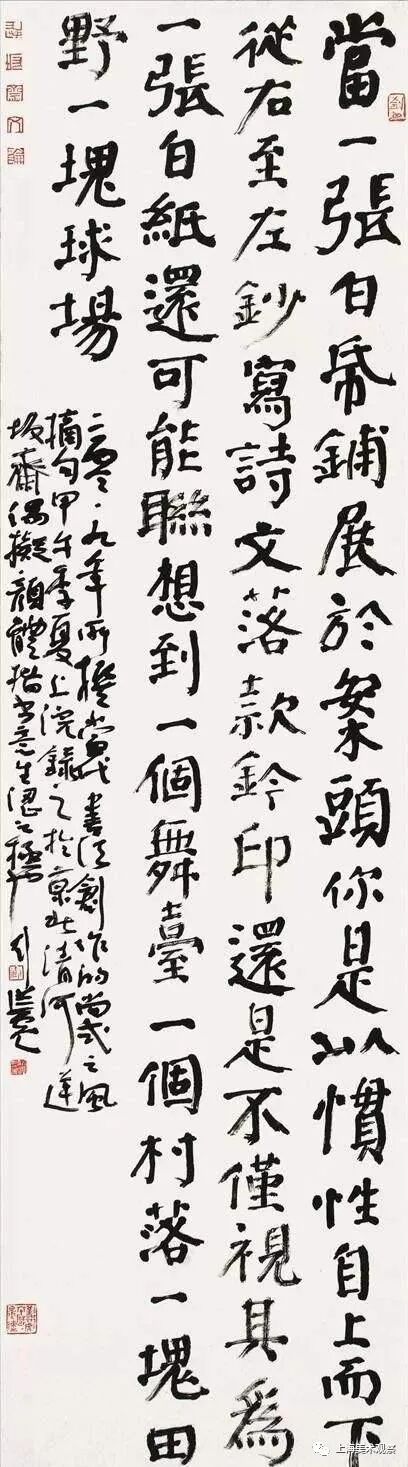 當一張白帋鋪展於案頭你是以慣性自上而下
從右至左鈔寫詩文落款鈐印還是不僅視其爲
一張白紙還可能聯想到一個舞臺一個村落一塊田
野一塊球場
二零·九年所撰當代書法創作的尚式之風
摘句甲午季夏上浣錄之於京北清河蓮
坂齋偶擬顏體楷書意生澀之極也 劉洪彪
上海美术观察